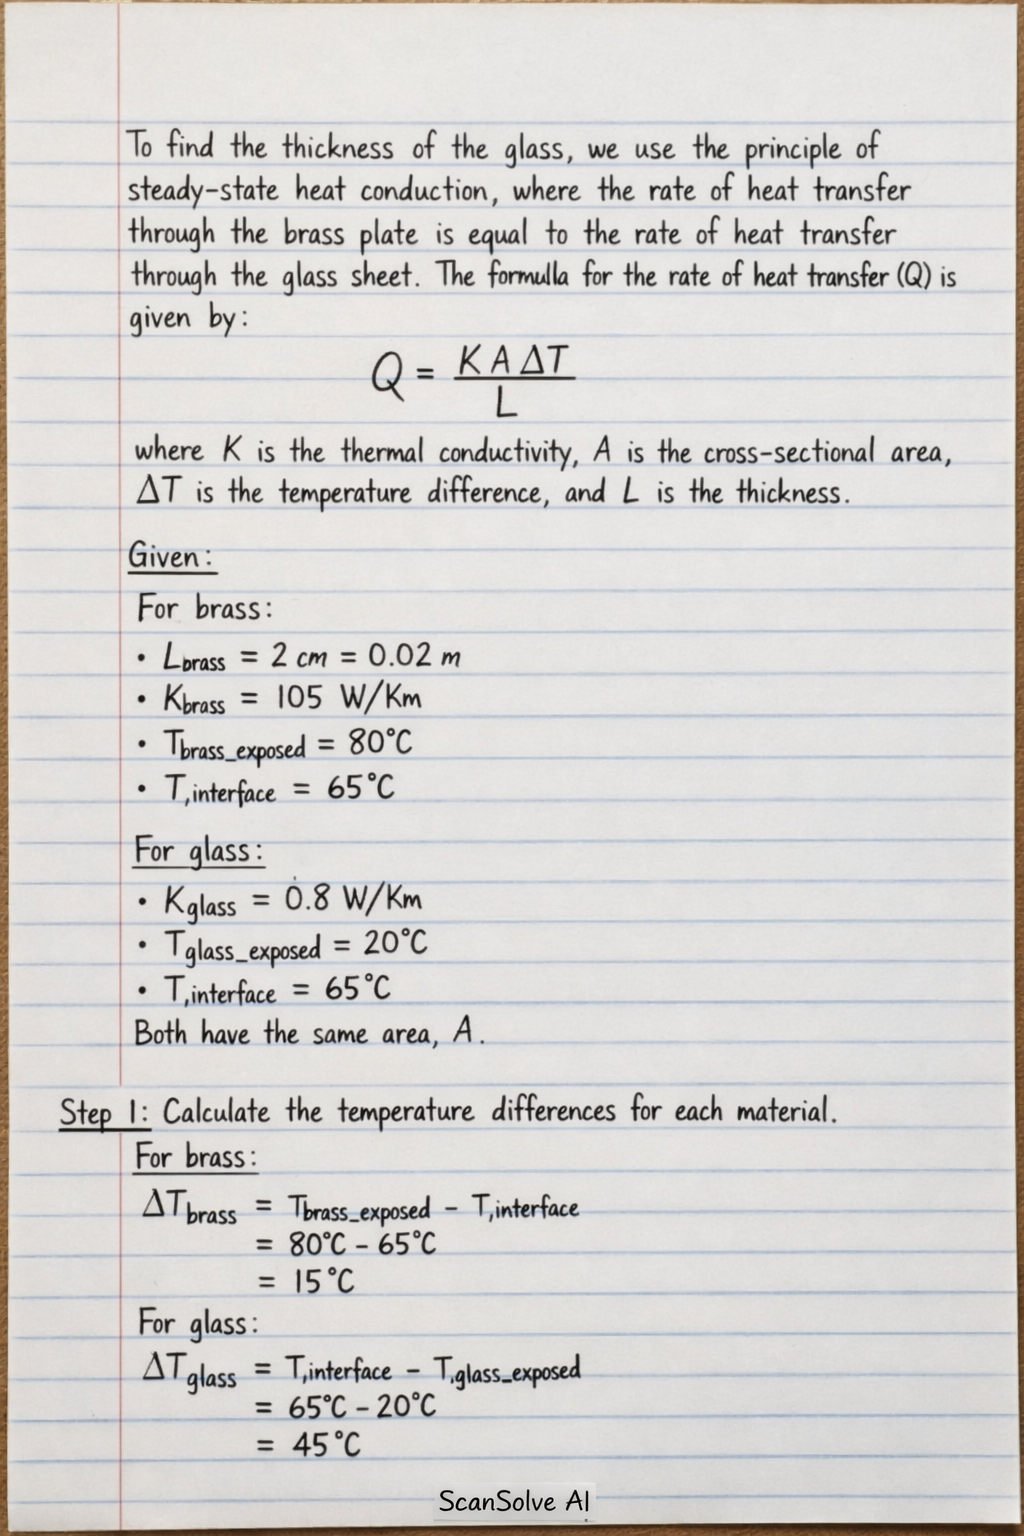 To find the thickness of the glass, we use the principle of
steady-state heat conduction, where the rate of heat transfer
through the brass plate is equal to the rate of heat transfer
through the glass sheet. The formulla for the rate of heat transfer (Q) is
given by:
Q = K A ΔT / L
where K is the thermal conductivity, A is the cross-sectional area,
ΔT is the temperature difference, and L is the thickness.
Given:
For brass:
• Lbrass = 2 cm = 0.02 m
• Kbrass = 105 W/Km
• Tbrass_exposed = 80°C
• T,interface = 65°C
For glass:
• Kglass = 0.8 W/Km
• Tglass_exposed = 20°C
• T,interface = 65°C
Both have the same area, A.
Step 1: Calculate the temperature differences for each material.
For brass:
ΔTbrass = Tbrass_exposed - T,interface
= 80°C - 65°C
= 15°C
For glass:
ΔTglass = T,interface - T,glass_exposed
= 65°C - 20°C
= 45°C
ScanSolve AI